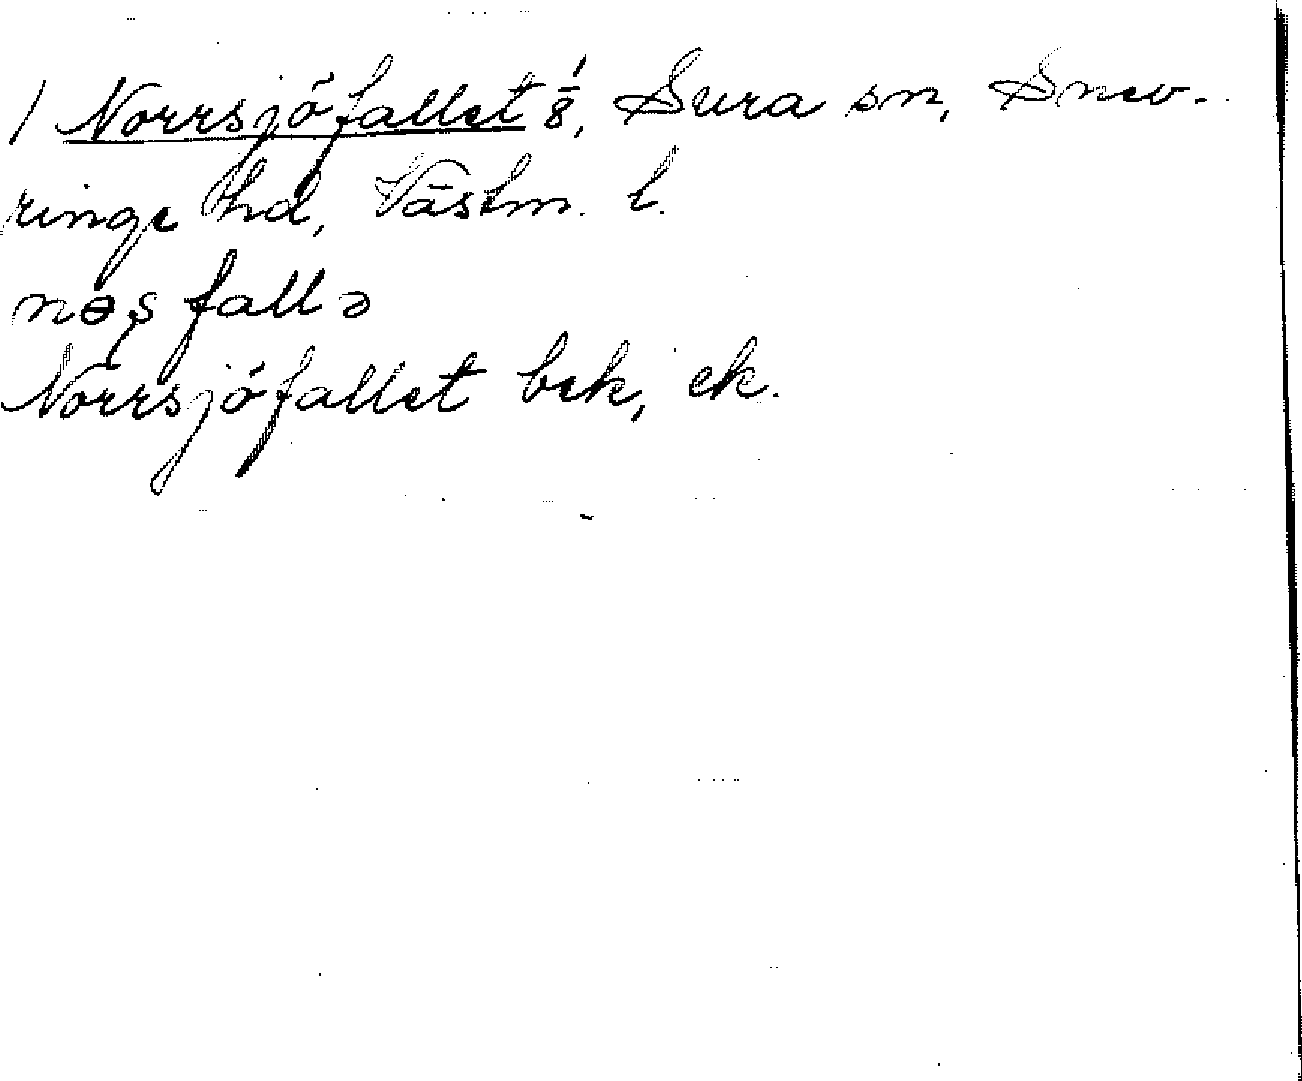 1 Norrsjöfallet 1/8, Sura sn, Snev-
ringe hd, Västm. l.
nəʂfallə
Norrsjöfallet bek, ek.